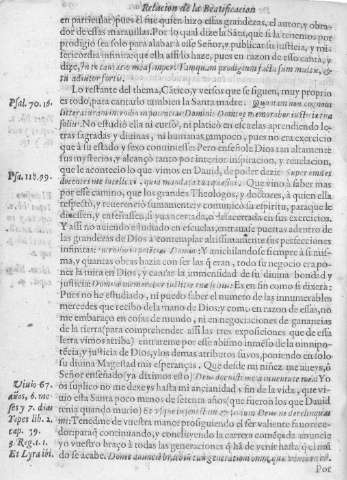 Relacion de la Beatificacion
en particular) pues el fue quien hizo essas grandezas, el autor, y obra-
dor de essas marauillas. Por lo qual dize la Sãta, que si la tenemos por
prodigio sea solo para alabar a esse Señor, y publicar su justicia, y mi-
sericordia infinita: que ella assi lo haze, pues en razon de esso canta, y
dize, In te cantatio mea semper. Tanquam prodigium factus sum multis, &
tu adiutor fortis.
Lo restante del thema, Cãtico, y versos que se siguen, muy proprio
Psal. 70. 16.
es todo, para cantarlo tambien la Santa madre. Quoniam non cognoui
litteraturam introibo in potentias Domini: Domine memorabor iustitiæ tuæ
solius. No estudiè ella ni cursò, ni platicò en escuelas aprendiendo le-
tras sagradas y diuinas, ni humanas tampoco, pues no era exercicio
que à su estado y sexo conuiniesse: Pero enseñole Dios tan altamente
sus mysterios, y alcançò tanto por interior inspiracion, y reuelacion,
Psa. 118. 99.
que le acontecio lo que vimos en Dauid, de poder dezir: Super omnes
docentes me intellexi, quia mandata tua quæsiui. Que vino à saber mas
por esse camino, que los grandes Theologos, y doctores, à quien ella
respectò, y reuerenciò sumamente y comunicò su espiritu, para que le
dixessen, y enseñassen, si yua cerrada, o desacertada en sus exercicios.
Y assi no auiendo estudiado en escuelas, entra por puertas adentro de
las grandezas de Dios à contemplar altissimamente sus perfecciones
infinitas: Introibo in potentias Domini: Y anichilandose siempre à si mis-
ma, y quantas obras hazia con ser las que eran, todo su negocio era po-
nerse la mira en Dios, y cantar la inmensidad de su diuina bondad y
justicia: Domine memorabor iustitiæ tuæ solius: Es en fin como si dixera:
Pues no he estudiado, ni puedo saber el numero de las innumerables
mercedes que recibo de la mano de Dios: y como en razon de essas, no
me embaraço en cosas de mundo, ni en negociaciones de ganancias
de la tierra (para comprehender assi las tres exposiciones que de essa
letra vimos arriba) entrareme por esse abismo inmenso de la omnipo-
tẽcia, y justicia de Dios, y los demas atributos suyos, poniendo en solo
su diuina Magestad mis esperanças, Que desde mi niñez me mueue, ò
Señor enseñado (ya dixi mos esto) Deus docuisti me a iuuentute mea: Yo
Viuio 67.
os suplico no me dexeys hasta mi ancianidad, y fin de la vida, que vi-
años, 6. me-
uio esta Santa poco menos de setenta años (que fueron los que Dauid
ses y 7. dias
tenia quando murio) Et vsque in senectam & senium Deus ne derelinquas
Yepes lib. 2.
me: Tenedme de vuestra mano prosiguiendo el ser valiente y fauorece-
cap. 39.
dor para que continuando, y concluyendo la carrera començada anuncie
3. Reg. 1. 1.
yo vuestro braço à todas las generaciones que ha de venir hasta que el mũ-
Et Lyra ibi.
do se acabe. Donec annuntiem brachium tuum generationi omni, quæ ventura est.
Por